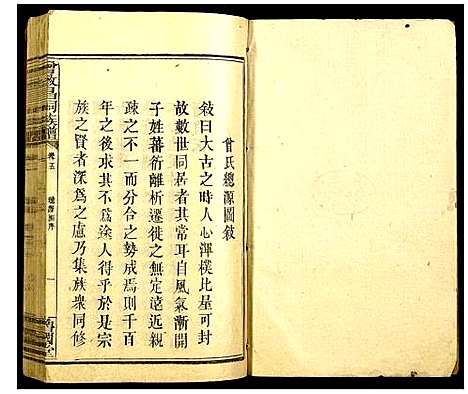 曾氏總源圖敍
敍曰大古之時人心渾樸比屋可封
故數世同居者其常耳自風氣漸開
子姓蕃衍離析遷徙之無定遠近親
疎之不一而分合之勢成焉則千百
年之後求其不爲途人得乎於是宗
族之賢者深爲之慮乃集族衆同修
族譜
卷五
一